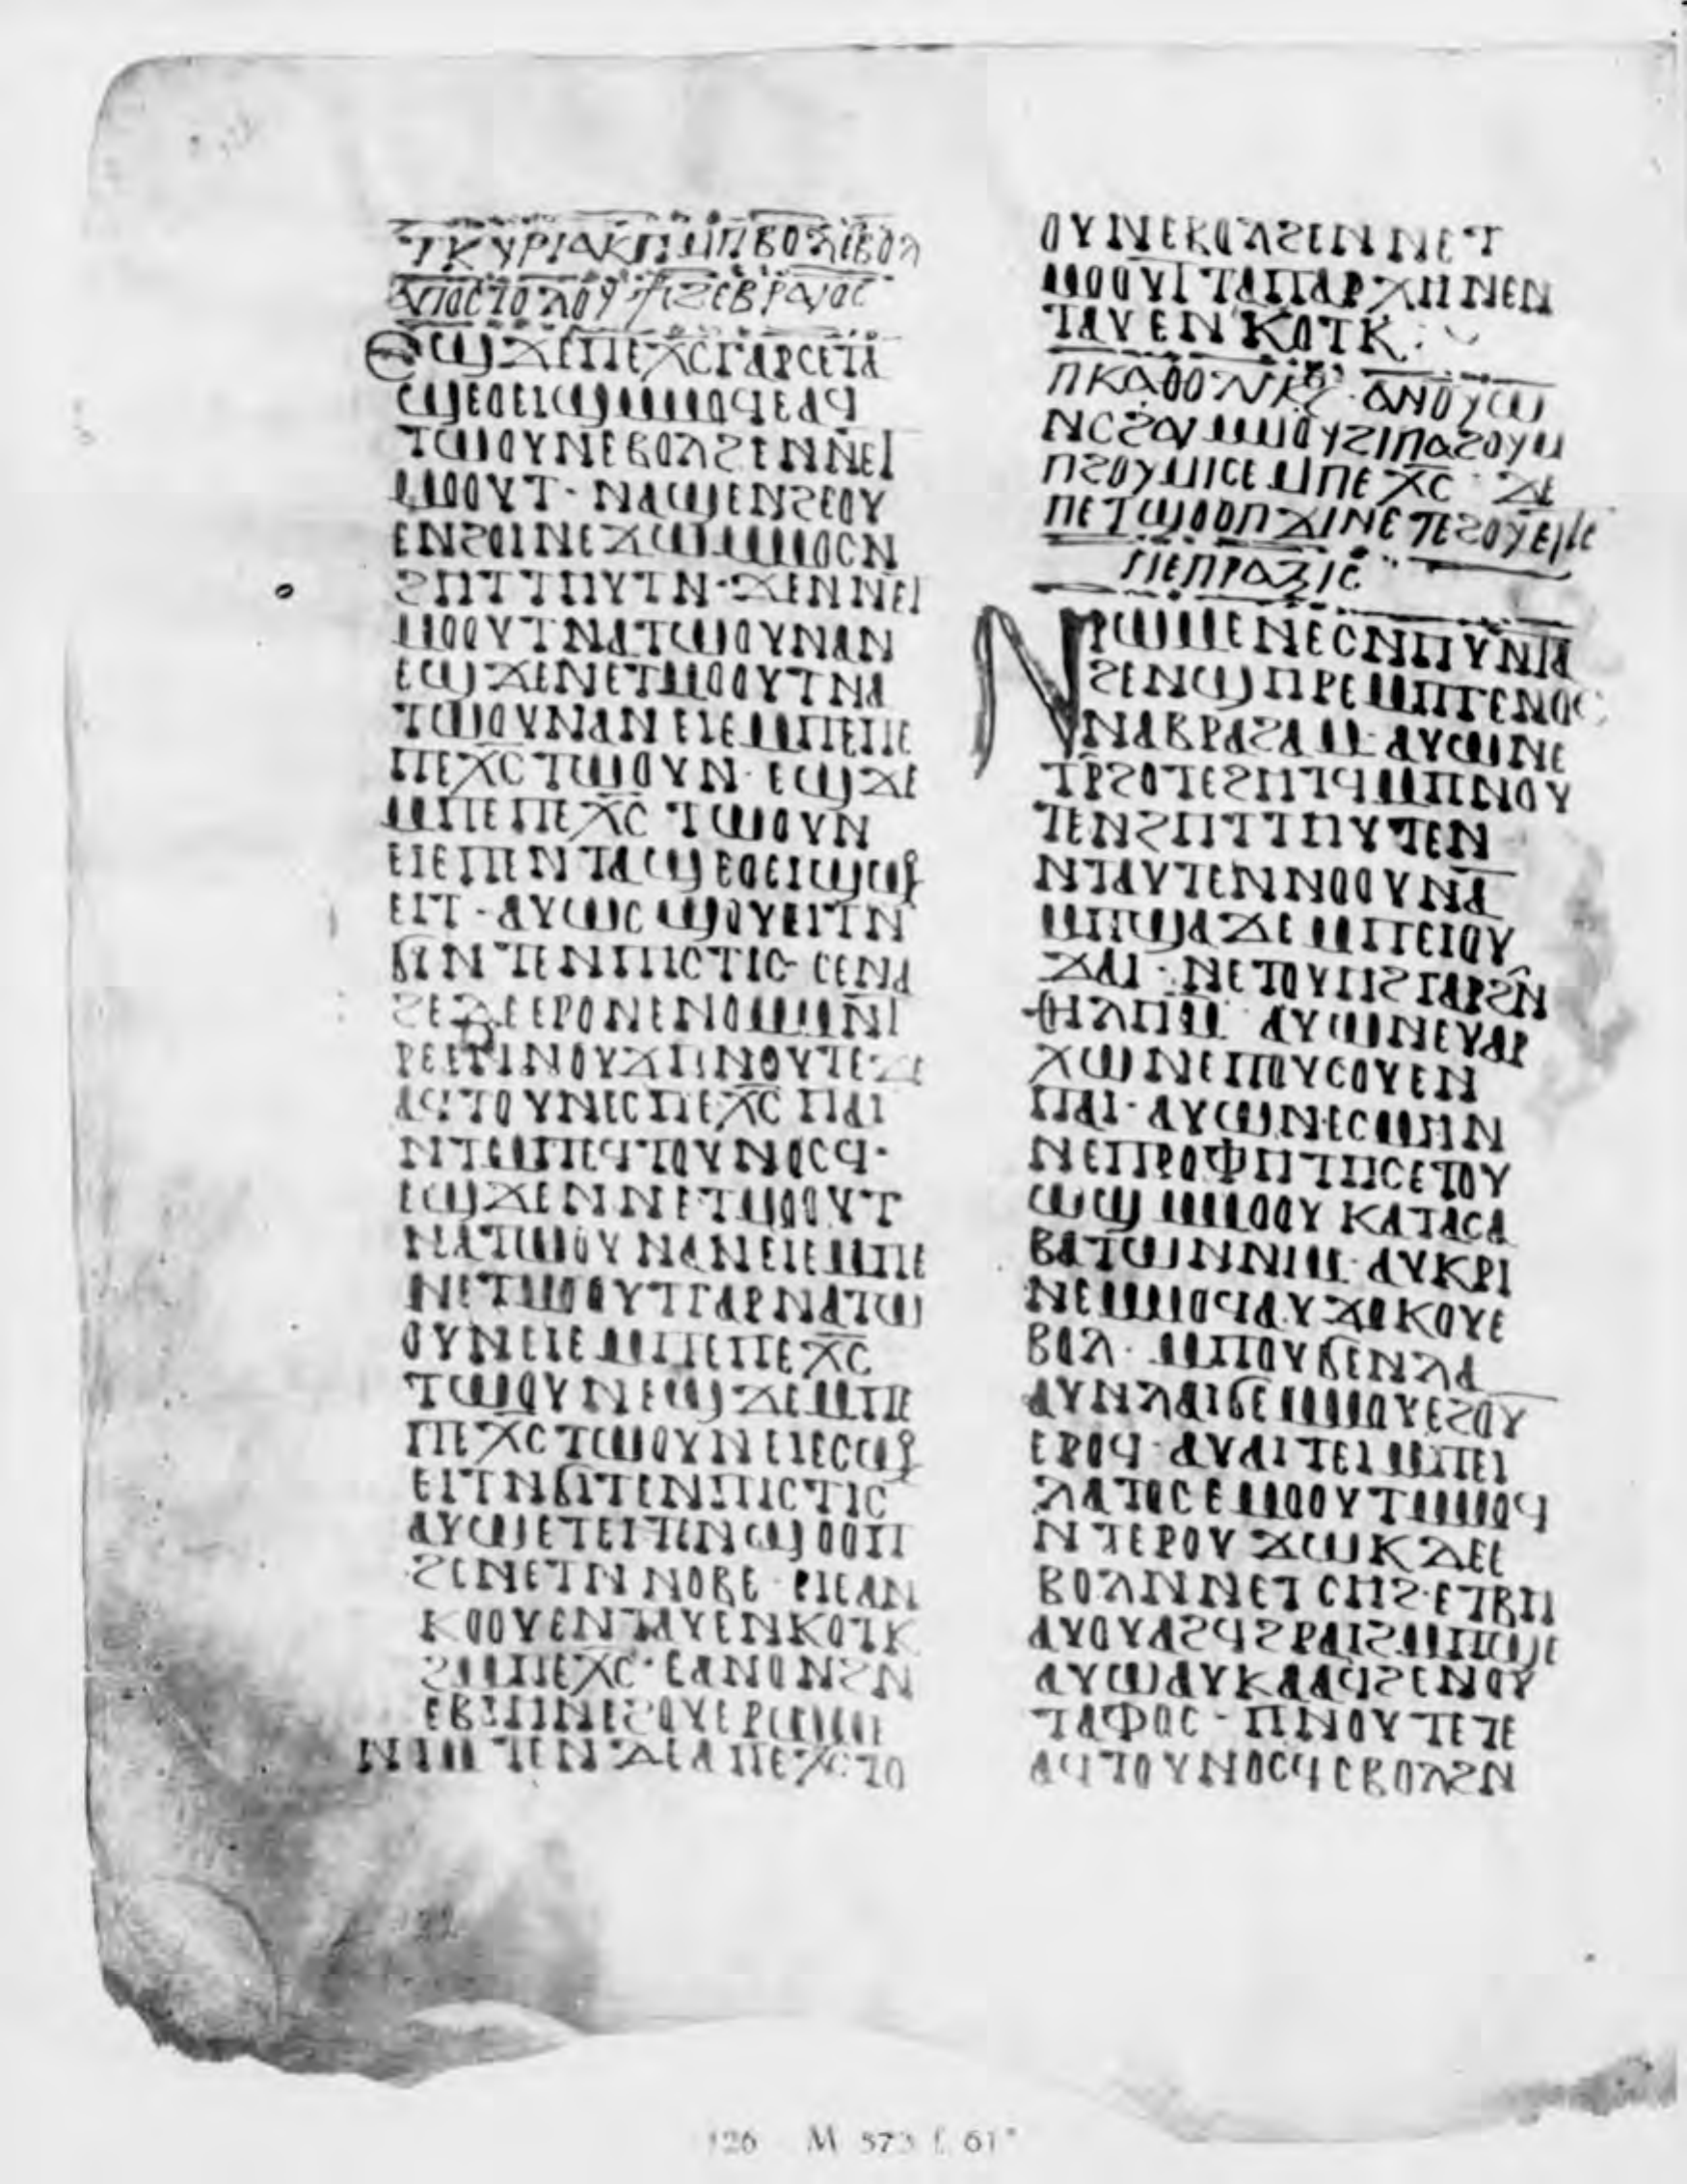 ⲧⲕⲩⲣⲓⲁⲕⲏ ⲙⲡⲃⲟⲗ ⲉⲃⲟⲗ
ⲁⲡⲟⲥⲧⲟⲗⲟⲩ
ⲉϣϫⲉⲡⲉⲭ̅ⲥ̅ⲅⲁⲣⲥⲉⲧⲁ
ϣⲉⲟⲉⲓϣⲙⲙⲟϥⲉⲁϥ
ⲧⲱⲟⲩⲛⲉⲃⲟⲗϩⲉⲛⲛⲉⲧ
ⲙⲟⲟⲩⲧ· ⲛⲁϣⲉⲛϩⲉⲟⲩ
ⲉⲛϩⲟⲓⲛⲉϫⲱⲙⲙⲟⲥⲛ
ϩⲏⲧⲧⲏⲩⲧⲛ·ϫⲉⲛⲛⲉⲧ
ⲙⲟⲟⲩⲧⲛⲁⲧⲱⲟⲩⲛⲁⲛ
ⲉϣϫⲉⲛⲉⲧⲙⲟⲟⲩⲧⲛⲁ
ⲧⲱⲟⲩⲛⲁⲛⲉⲓⲉⲙⲡⲉⲡⲉ
ⲡⲉⲭ̅ⲥ̅ⲧⲱⲟⲩⲛ·ⲉϣϫⲉ
ⲙⲡⲉⲡⲉⲭ̅ⲥ̅ⲧⲱⲟⲩⲛ
ⲉⲓⲉⲡⲉⲛⲧⲁϣⲉⲟⲉⲓϣϣⲟⲩ
ⲉⲓⲧ·ⲁⲩⲱⲥϣⲟⲩⲉⲓⲧⲛ
ϭⲓⲛⲧⲉⲛⲡⲓⲥⲧⲓⲥ·ⲥⲉⲛⲁ
ϩⲉⲇⲉⲉⲣⲟⲛⲉⲛⲟⲙⲙⲛⲧ
ⲁϥⲧⲟⲩⲛⲉⲥⲡⲉⲭ̅ⲥ̅ⲡⲁⲓ
ⲛⲧⲉⲙⲡⲉϥⲧⲟⲩⲛⲟⲥϥ·
ⲉϣϫⲉⲛⲛⲉⲧⲙⲟⲟⲩⲧ
ⲛⲁⲧⲱⲟⲩⲛⲁⲛⲉⲓⲉⲙⲡⲉ
ⲛⲉⲧⲙⲟⲟⲩⲧⲅⲁⲣⲛⲁⲧⲱ
ⲟⲩⲛⲉⲓⲉⲙⲡⲉⲡⲉⲭ̅ⲥ̅
ⲧⲱⲟⲩⲛⲉϣϫⲉⲙⲡⲉ
ⲡⲉⲭ̅ⲥ̅ⲧⲱⲟⲩⲛⲉⲓⲉⲥϣⲟⲩ
ⲉⲓⲧⲛϭⲓⲧⲉⲛⲡⲓⲥⲧⲓⲥ
ⲁⲩⲱⲉⲧⲉⲓⲧⲉⲛϣⲟⲟⲡ
ϩⲉⲛⲉⲧⲛⲛⲟⲃⲉ·ⲉⲓⲉⲁⲛ
ⲕⲟⲟⲩⲉⲛⲧⲁⲩⲉⲛⲕⲟⲧⲕ
ϩⲙⲡⲉⲭ̅ⲥ̅·ⲉⲁⲛⲟⲛϩⲛ
ⲉⲃⲓⲏⲛⲉϩⲟⲩⲉⲣⲱⲙⲉ
ⲛⲓⲙⲧⲉⲛⲇⲉⲁⲡⲉⲭ̅ⲥ̅ⲧⲟ
ⲟⲩⲛⲉⲃⲟⲗϩⲉⲛⲛⲉⲧ
ⲙⲟⲟⲩⲧⲧⲁⲡⲁⲣⲭⲏⲛⲉⲛ
ⲧⲁⲩⲉⲛⲕⲟⲧⲕ:
ⲡⲕⲁⲑⲟⲗⲓⲕ· ⲁⲛⲟⲩⲱ
ⲛⲥϩⲁⲓⲙⲙⲟⲩϩⲓⲡⲁϩⲟⲩⲙ
ⲡϩⲟⲩⲙⲓⲥⲉⲙⲡⲉⲭ̅ⲥ̅ ϫⲉ
ⲡⲉⲧϣⲟⲟⲡϫⲓⲛⲉⲧⲉϩⲟⲩⲉⲓⲧⲉ
ⲡⲉⲡⲣⲁⲝⲓⲥ
ⲛⲣⲱⲙⲉⲛⲉⲥⲛⲏⲩⲛⲁ
ϩⲉⲛϣⲏⲣⲉⲙⲡⲅⲉⲛⲟⲥ
ⲛⲁⲃⲣⲁϩⲁⲙ·ⲁⲩⲱⲛⲉ
ⲧⲣ̅ϩⲟⲧⲉϩⲏⲧϥⲙⲡⲛⲟⲩ
ⲧⲉⲛϩⲏⲧⲧⲏⲩⲧⲉⲛ
ⲛⲧⲁⲩⲧⲉⲛⲛⲟⲟⲩⲛⲁ
ⲙⲡϣⲁϫⲉⲙⲡⲉⲓⲟⲩ
ϫⲁⲓ·ⲛⲉⲧⲟⲩⲏϩⲅⲁⲣϩⲛ
ⲑⲓⲗⲏⲙ̅ ⲁⲩⲱⲛⲉⲩⲁⲣ
ⲭⲱⲛⲉⲡⲟⲩⲥⲟⲩⲉⲛ
ⲡⲁⲓ·ⲁⲩⲱⲛⲉⲥⲙⲏⲛ
ⲛⲉⲡⲣⲟⲫⲏⲧⲏⲥⲉⲧⲟⲩ
ⲱϣⲙⲙⲟⲟⲩⲕⲁⲧⲁⲥⲁ
ⲃⲁⲧⲱⲛⲛⲓⲙ·ⲁⲩⲕⲣⲓ
ⲛⲉⲙⲙⲟϥⲁⲩϫⲟⲕⲟⲩⲉ
ⲃⲟⲗ·ⲙⲡⲟⲩϭⲉⲛⲗⲁ
ⲁⲩⲛⲗⲁⲓϭⲉⲙⲙⲟⲩⲉϩⲟⲩ
ⲉⲣⲟϥ·ⲁⲩⲁⲓⲧⲉⲓⲙⲡⲉⲓ
ⲗⲁⲧⲟⲥⲉⲙⲟⲟⲩⲧⲙⲙⲟϥ
ⲛⲧⲉⲣⲟⲩϫⲱⲕⲇⲉⲉ
ⲃⲟⲗⲛⲛⲉⲧⲥⲏϩ·ⲉⲧⲃⲏ
ⲁⲩⲟⲩⲁϩϥϩⲣⲁⲓϩⲙⲡϣⲉ
ⲁⲩⲱⲁⲩⲕⲁⲁϥϩⲉⲛⲟⲩ
ⲧⲁⲫⲟⲥ·ⲡⲛⲟⲩⲧⲉⲧⲉ
ⲁϥⲧⲟⲩⲛⲟⲥϥⲉⲃⲟⲗϩⲛ
M 573 f. 61ᵛ